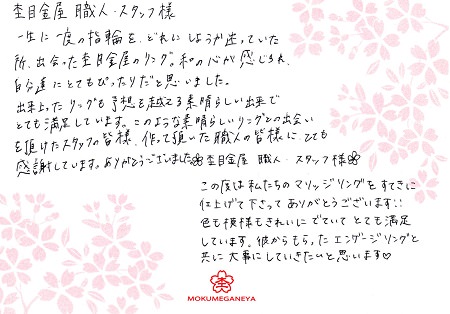 杢目金屋 職人・スタッフ様
一生に一度の指輪を、どれにしようか迷っていた
所、出会った杢目金屋のリング。和の心が感じられ、
自分達にとてもぴったりだと思いました。
出来上ったリングも予想を越える素晴らしい出来で
とても満足しています。このような素晴らしいリングとの出会い
を頂けたスタッフの皆様、作って頂いた職人の皆様に、とても
感謝しています。ありがとうございました
杢目金屋 職人・スタッフ様
この度は私たちのマリッジリングをすてきに
仕上げて下さって ありがとうございます!!
色も模様もきれいにでていて とても満足
しています。彼からもらったエンゲージリングと
共に大事にしていきたいと思います♡
MOKUMEGANEYA